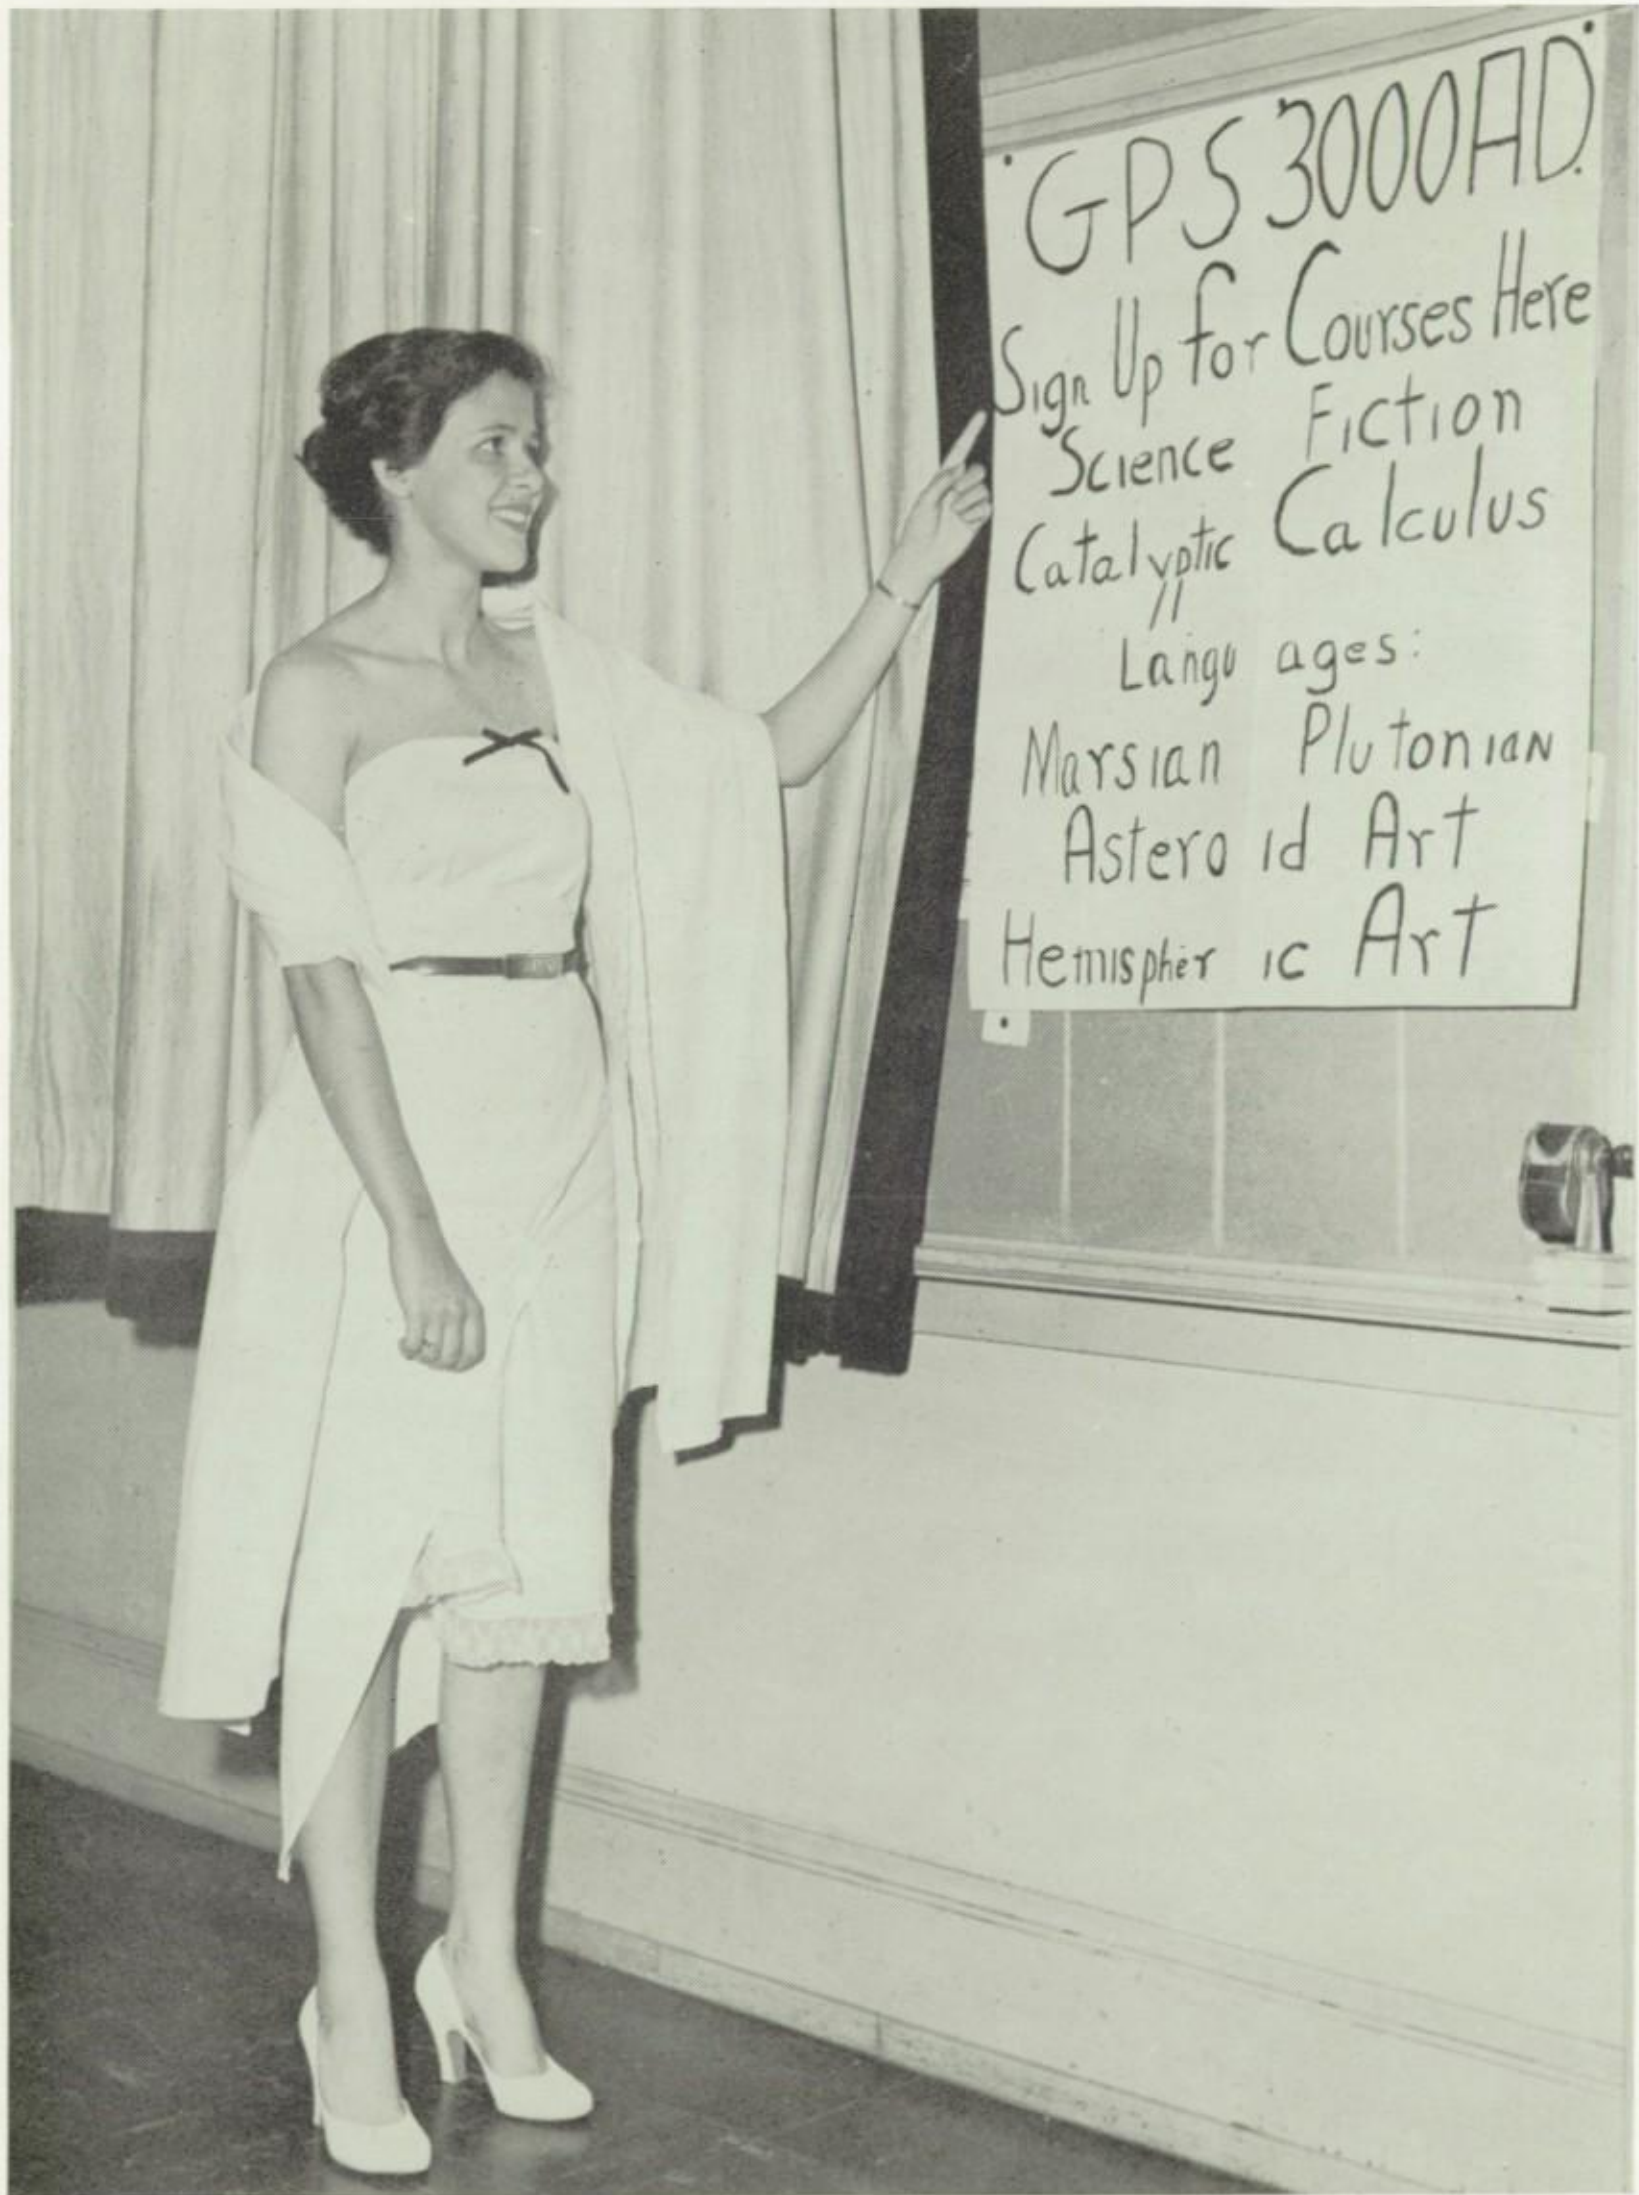 GPS 3000AD.
Sign Up for Courses Here
Science Fiction
Catalyptic Calculus
Languages:
Marsian Plutonian
Asteroid Art
Hemispheric Art